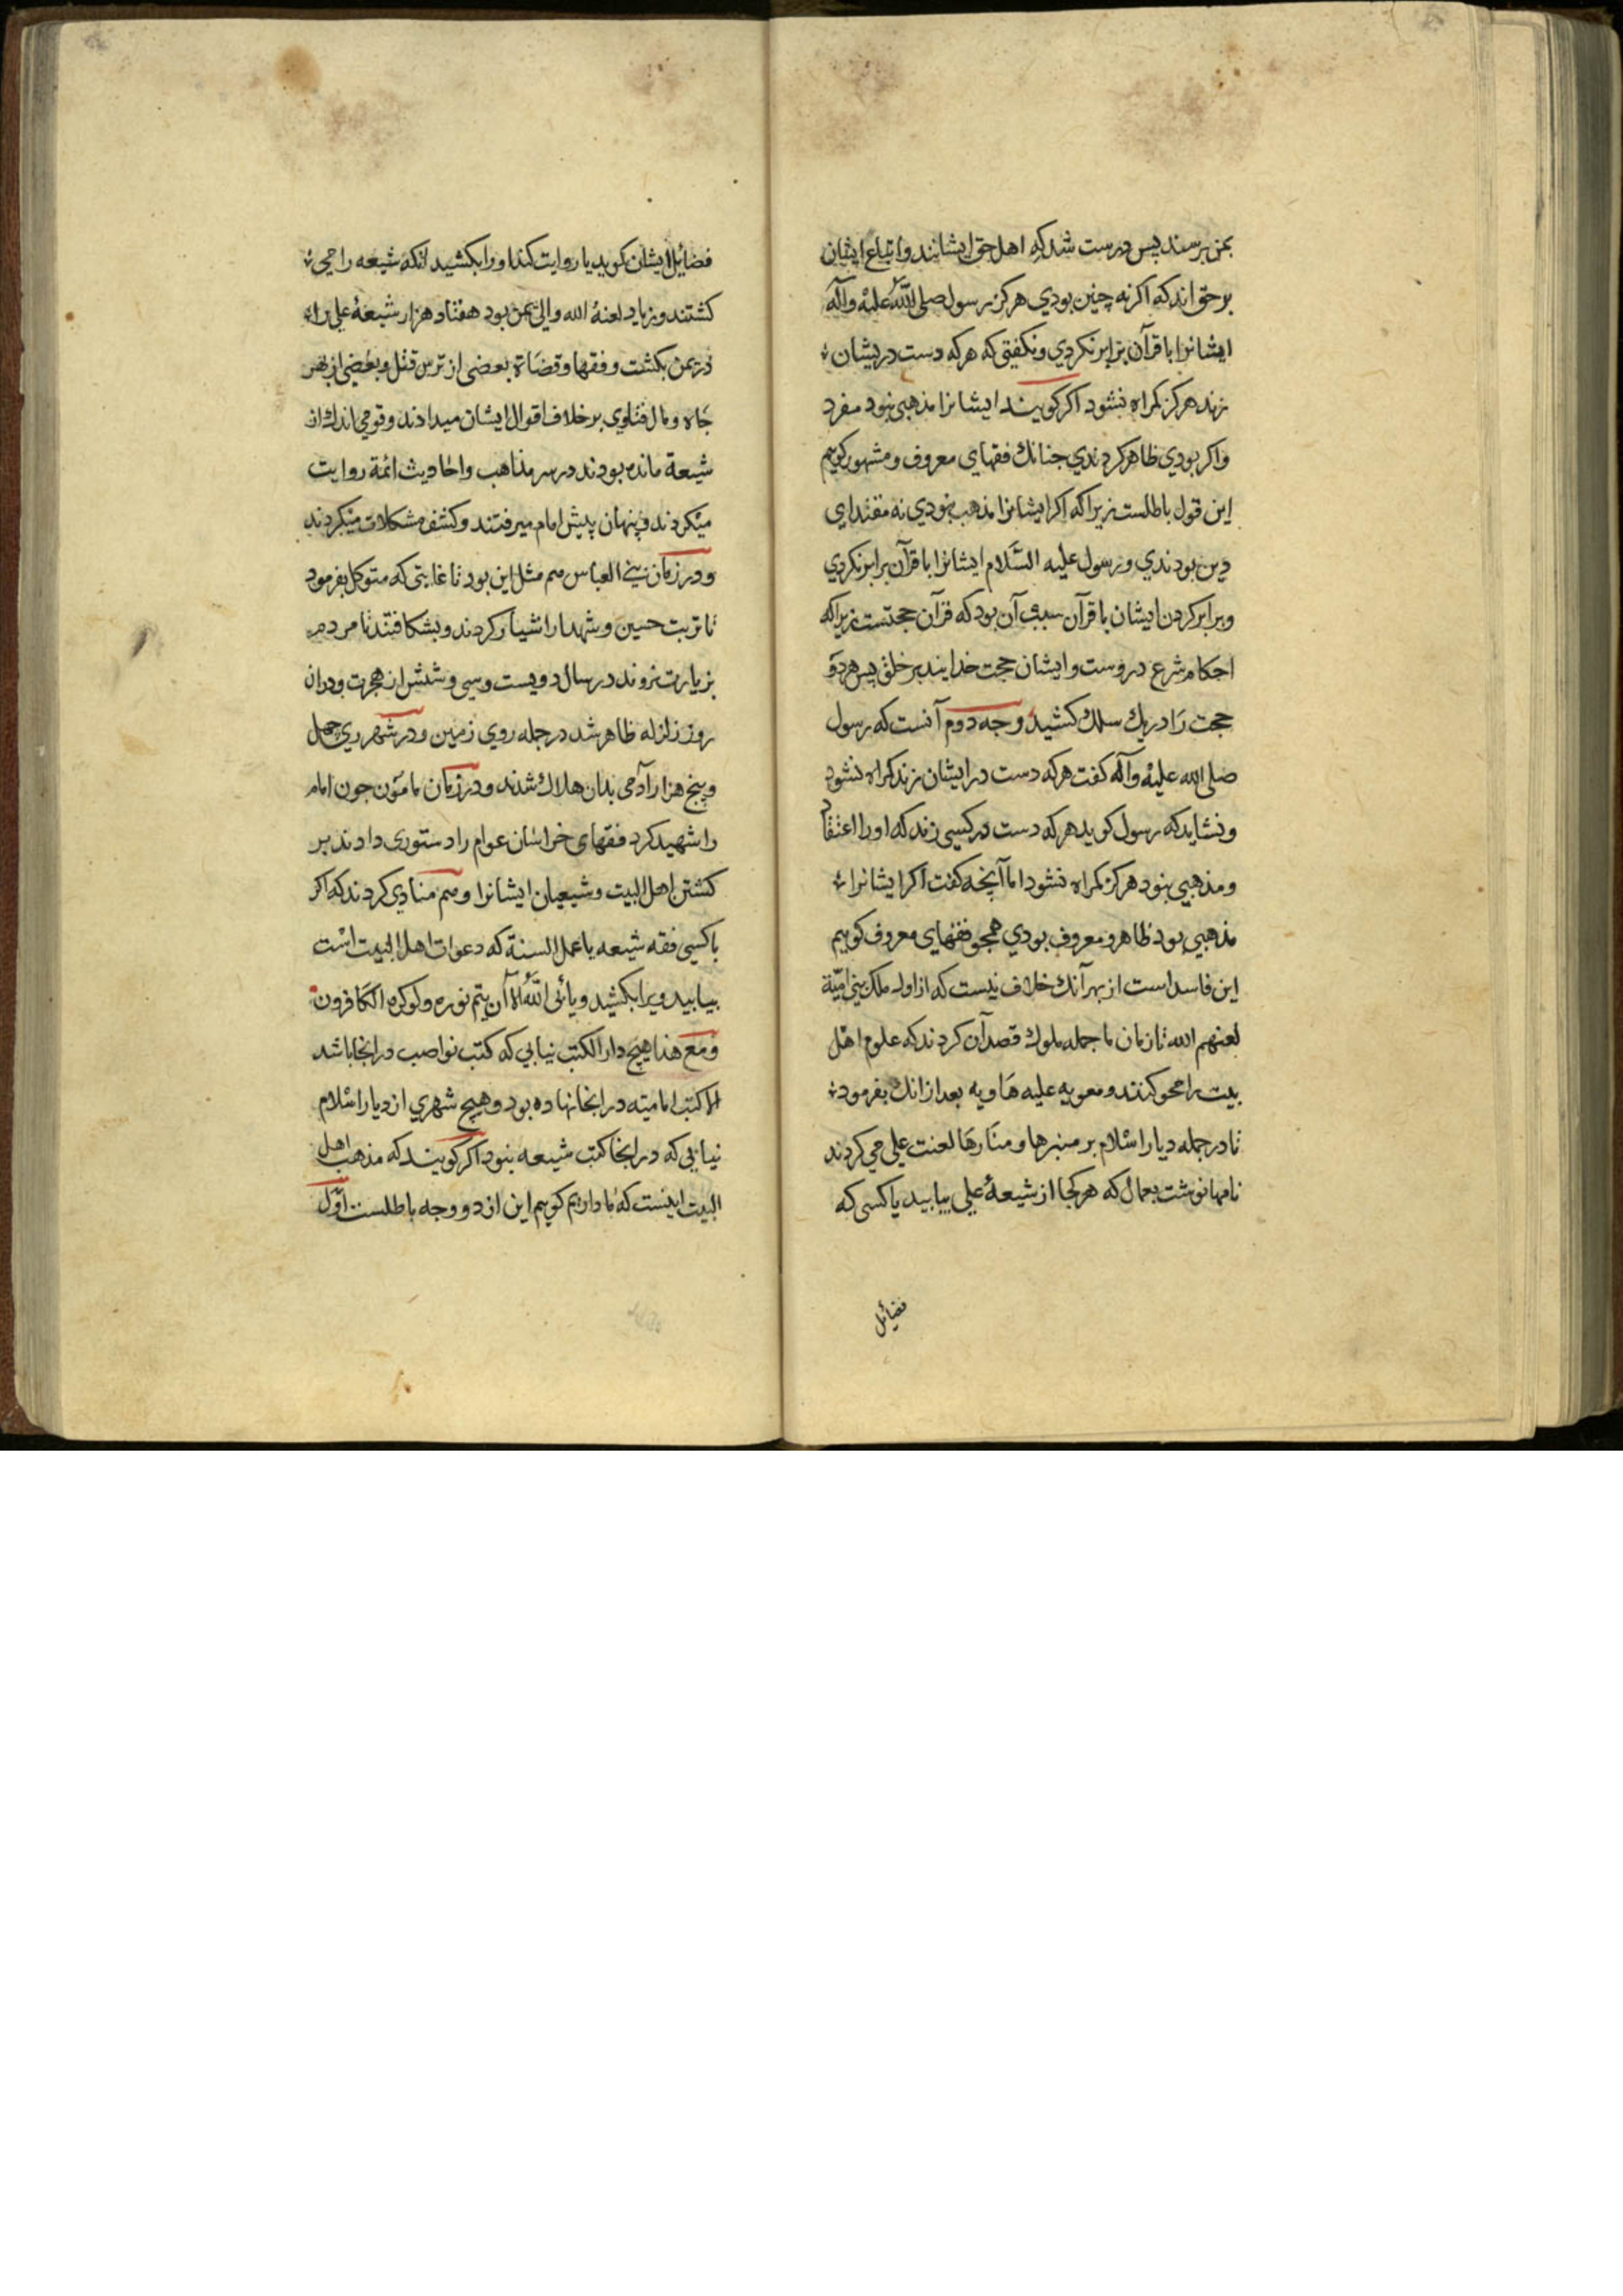 بمن برسند پس درست شد که اهل حق ایشانند و اتباع ایشان
بر حق اند که اکر نه چنین بودي هرکز رسول صلی الله علیه وآله
ایشانرا با قرآن برابر نکردي و نکفتی که هرکه دست در یشان
زند هرکز کمراه نشود اکر کویند ایشانرا مذهبی نبود مفرد
واکر بودي ظاهر کردندي جنانك فقهاي معروف و مشهور کویم
این قول باطلست زیراکه اکر ایشانرا مذهب نبودي نه مقتداي
دین بودندي و رسول علیه السَّلام ایشانرا با قرآن برابر نکردي
وبرابر کردن ایشان با قرآن سبب آن بود که قرآن حجتست زیراکه
احکام شرع دروست وایشان حجت خدایند بر خلق پس هر دو
حجت رَا در یك سلك کشید وجه دوم آنست که رسول
صلی الله علیه وآله کفت هرکه دست در ایشان زند کمراه نشود
و نشاید که رسول کوید هرکه دست در کسی زند که او را اعتقاد
و مذهبی نبود هرکز کمراه نشود اما آنجه کفت اکر ایشانرا
مذهبی بود ظاهر و معروف بودي همجو فقهاي معروف کوییم
این فاسد است از بهر آنك خلاف نیست که از اول ملك بنی امیّة
لعنهم الله تا زمان ما جمله ملوك قصد آن کردند که علوم اهل
بیت را محو کنند و معویه علیه هَاویه بعد از انك بفرمود
تا در جمله دیار اسلام بر منبرها و منَارهَا لعنت علی می کردند
نامها نوشت بعمال که هر کجا از شیعهٔ علی بیابید یا کسی که
فضائل
فضائل ایشان کوید یا روایت کند او را بکشید انکه شیعه را می
کشتند و زیاد لعنهٔ الله والی یمن بود هفتاد هزار شیعهٔ علی را
در یمن بکشت و فقها و قضَاة بعضی از ترس قتل و بعضی از بهر
جَاه و مال فتاوي بر خلاف اقوال ایشان میدادند و قومی اندك از
شیعة مانده بودند در سر مذاهب و احادیث ائمة روایت
میکردند و پنهان پیش امام میرفتند و کشف مشکلات میکردند
و در زمان بنی العباس هم مثل این بود تا غایتی که متوکل بفرمود
تا تربت حسین و شهدا را شیار کردند و بشکافتند تا مردم
بزیارت نروند در سال دویست وسی وشش از هجرت و در ان
روز زلزله ظاهر شد در جمله روي زمین و در شهر ري چهل
و پنج هزار آدمی بدان هلاك شدند و در زمان مامَون جون امام
را شهید کرد فقهاي خراسان عوام را دستوری دادند بر
کشتن اهل البیت وشیعیان ایشانرا وهم منادي کردند که اکر
با کسی فقه شیعه یا عمل السنة که دعوات اهل البیت است
بیابید ویرا بکشید و یأبی اللّٰهُ الا آن یتم نوره و لو کره الکافرون
ومَع هذا هیچ دار الکتب نیابی که کتب نواصب در انجا باشد
الا کتب امامیّه در انجا نهاده بود و هیچ شهري از دیار اسْلام
نیابی که در انجا کتب شیعه نبود اکر کویند که مذهب اهل
البیت اینست که ما داریم کوییم این از دو وجه باطلست اوّل